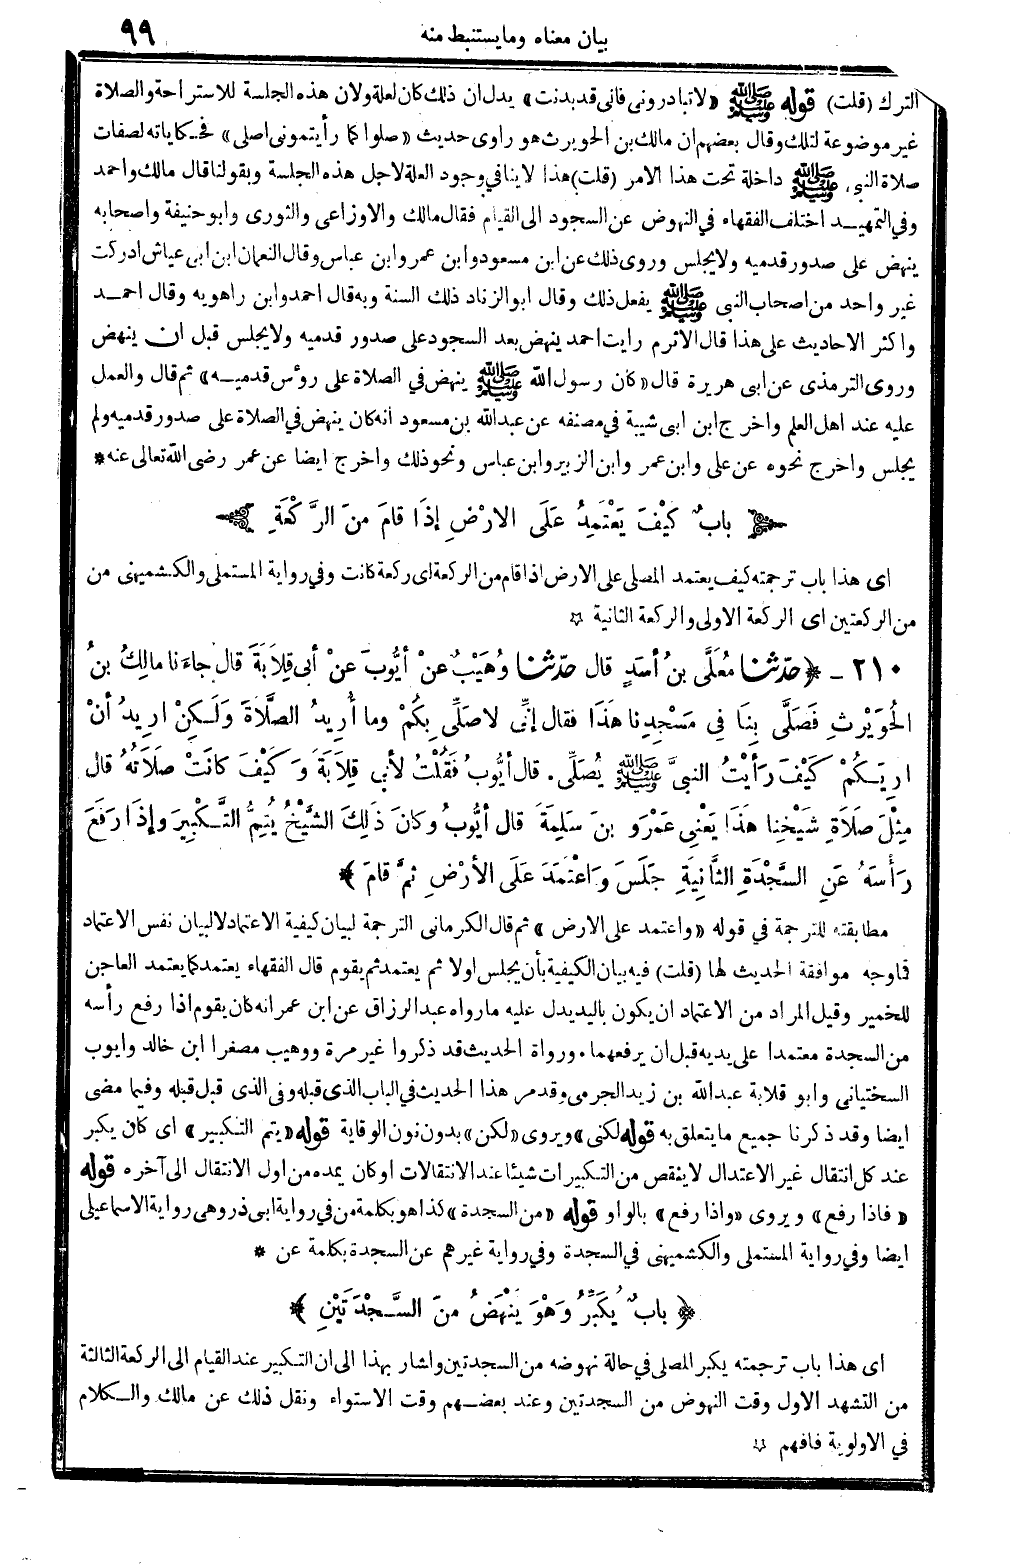 بيان معناه وما يستنبط منه ٩٩
الترك (قلت) قوله ﷺ «لا تبادروني فاني قد بدنت» يدل ان ذلك كان لعلة ولان هذه الجلسة للاستراحة والصلاة
غير موضوعة لتلك وقال بعضهم ان مالك بن الحويرث هو راوي حديث «صلوا كما رأيتموني اصلى» فحكاياته لصفات
صلاة النبي ﷺ داخلة تحت هذا الامر (قلت) هذا لا ينافي وجود العلة لاجل هذه الجلسة وبقولنا قال مالك واحمد
وفي التمهيد اختلف الفقهاء في النهوض عن السجود الى القيام فقال مالك والاوزاعى والثورى وابو حنيفة واصحابه
ينهض على صدور قدميه ولا يجلس وروى ذلك عن ابن مسعود وابن عمر وابن عباس وقال النعمان ابن ابى عياش ادركت
غير واحد من اصحاب النبي ﷺ يفعل ذلك وقال ابو الزناد ذلك السنة وبه قال احمد وابن راهويه وقال احمد
واكثر الاحاديث على هذا قال الاثرم رايت احمد ينهض بعد السجود على صدور قدميه ولا يجلس قبل ان ينهض
وروى الترمذى عن ابى هريرة قال «كان رسول الله ﷺ ينهض في الصلاة على رؤس قدميه» ثم قال والعمل
عليه عند اهل العلم واخرج ابن ابى شيبة في مصنفه عن عبدالله بن مسعود انه كان ينهض في الصلاة على صدور قدميه ولم
يجلس واخرج نحوه عن على وابن عمر وابن الزبير وابن عباس ونحو ذلك واخرج ايضا عن عمر رضى الله تعالى عنه *
بابٌ كَيْفَ يَعْتَمِدُ عَلَى الارْضِ إذَا قامَ منَ الرَّكْعَةِ
اى هذا باب ترجمته كيف يعتمد المصلى على الارض اذا قام من الركعة اى ركعة كانت وفي رواية المستملى والكشميهنى من
من الركعتين اى الركعة الاولى والركعة الثانية ☆
٢١٠ - ﴿ حدّثنا مُعَلَّى بنُ أسَدٍ قال حدّثنا وُهَيْبٌ عنْ أيُّوبَ عنْ أبى قِلاَبَةَ قال جاءَنا مالِكُ بنُ
الحُوَيْرِثِ فَصَلَّى بِنَا فِي مَسْجِدِنا هذَا فقال إنِّى لاصَلِّى بِكُمْ وما أُرِيدُ الصَّلاَةَ وَلَكِنْ ارِيدُ أنْ
ارِيَكُمْ كَيْفَ رَأيْتُ النبيَّ ﷺ يُصَلِّى . قال أيُّوبُ فَقُلْتُ لأبِي قِلاَبَةَ وَكَيْفَ كانَتْ صَلاَتُهُ قال
مِثْلَ صَلاَةِ شَيْخِنا هذَا يَعْنِى عَمْرَو بنَ سَلِمَةَ قال أيُّوبُ وكانَ ذَلِكَ الشَّيْخُ يُتِمُّ التَّكْبِيرَ وإذَا رفَعَ
رَأْسَهُ عَنِ السَّجْدَةِ الثَّانِيَةِ جَلَسَ وَاعْتَمَدَ عَلَى الأرْضِ ثمَّ قامَ ﴾
مطابقته للترجمة في قوله «واعتمد على الارض» ثم قال الكرمانى الترجمة لبيان كيفية الاعتماد لا لبيان نفس الاعتماد
فما وجه موافقة الحديث لها (قلت) فيه بيان الكيفية بأن يجلس اولا ثم يعتمد ثم يقوم قال الفقهاء يعتمد كما يعتمد العاجن
للخمير وقيل المراد من الاعتماد ان يكون باليد يدل عليه ما رواه عبد الرزاق عن ابن عمر انه كان يقوم اذا رفع رأسه
من السجدة معتمدا على يديه قبل ان يرفعهما . ورواة الحديث قد ذكروا غير مرة ووهيب مصغرا ابن خالد وايوب
السختيانى وابو قلابة عبدالله بن زيد الجرمى وقد مر هذا الحديث في الباب الذى قبله وفى الذى قبل قبله وفيما مضى
ايضا وقد ذكرنا جميع ما يتعلق به قوله لكنى» ويروى «لكن» بدون نون الوقاية قوله «يتم التكبير» اى كان يكبر
عند كل انتقال غير الاعتدال لا ينقص من التكبيرات شيئا عند الانتقالات او كان يمده من اول الانتقال الى آخره قوله
«فاذا رفع» ويروى «واذا رفع» بالواو قوله «من السجدة» كذا هو بكلمة من في رواية ابى ذر وهى رواية الاسماعيلى
ايضا وفي رواية المستملى والكشميهنى في السجدة وفي رواية غيرهم عن السجدة بكلمة عن *
﴿ بابٌ يُكَبِّرُ وَهْوَ يَنْهَضُ منَ السَّجْدَتَيْنِ ﴾
اى هذا باب ترجمته يكبر المصلى في حالة نهوضه من السجدتين واشار بهذا الى ان التكبير عند القيام الى الركعة الثالثة
من التشهد الاول وقت النهوض من السجدتين وعند بعضهم وقت الاستواء ونقل ذلك عن مالك والكلام
في الاولوية فافهم ☆